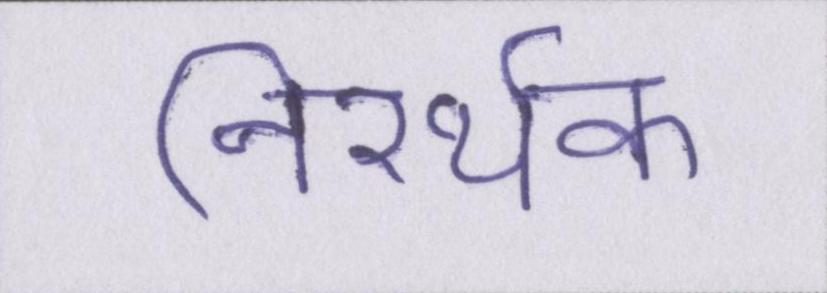 निरर्थक